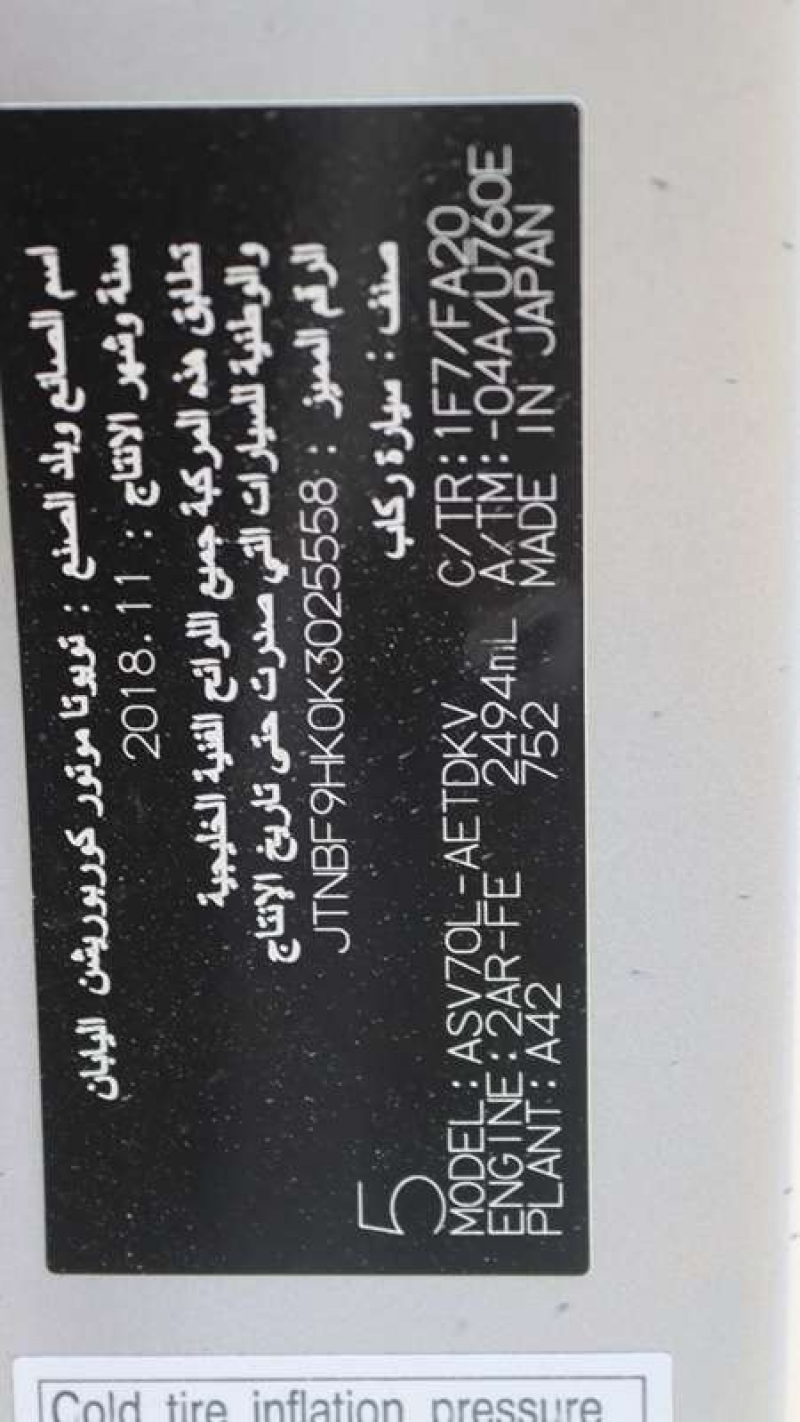 اسم الصانع وبلد الصنع : تويوتا موتور كوربوريشن اليابان
سنة وشهر الانتاج : 2018.11
تطابق هذه المركبة جميع اللوائح الفنية الخليجية
والوطنية للسيارات التي صدرت حتى تاريخ الانتاج
الرقم المميز : JTNBF9HK0K3025558
صنف : سيارة ركاب
5
MODEL : ASV70L-AETDKV C/TR: 1F7/FA20
ENGINE: 2AR-FE 2494mL A/TM: -04A/U760E
PLANT: A42 752 MADE IN JAPAN
Cold tire inflation pressure